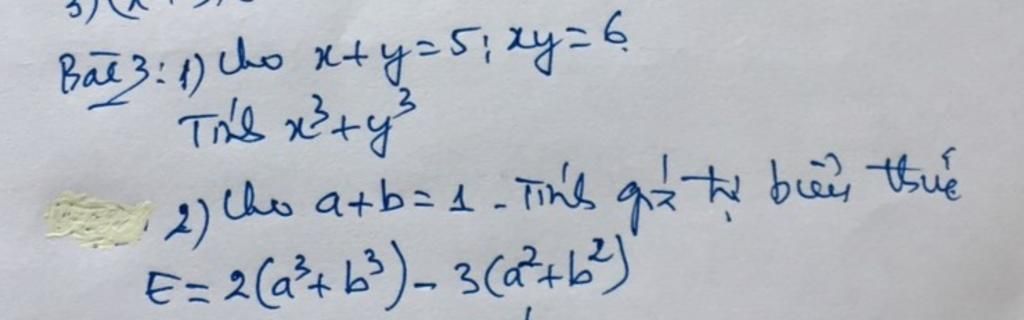 Bài 3: 1) Cho x+y=5; xy=6.
Tính x³+y³
2) Cho a+b=1. Tính giá trị biểu thức
E=2(a³+b³)-3(a²+b²)